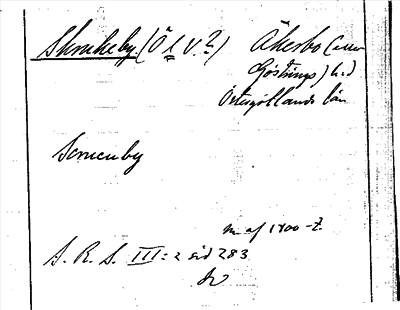 Skrukeby. (Ö l. V.?) Åkerbo (eller
Göstrings) h:d
Östergötlands län
Scrucuby
m. af 1400-t.
S. R. S. III: 2 sid 283